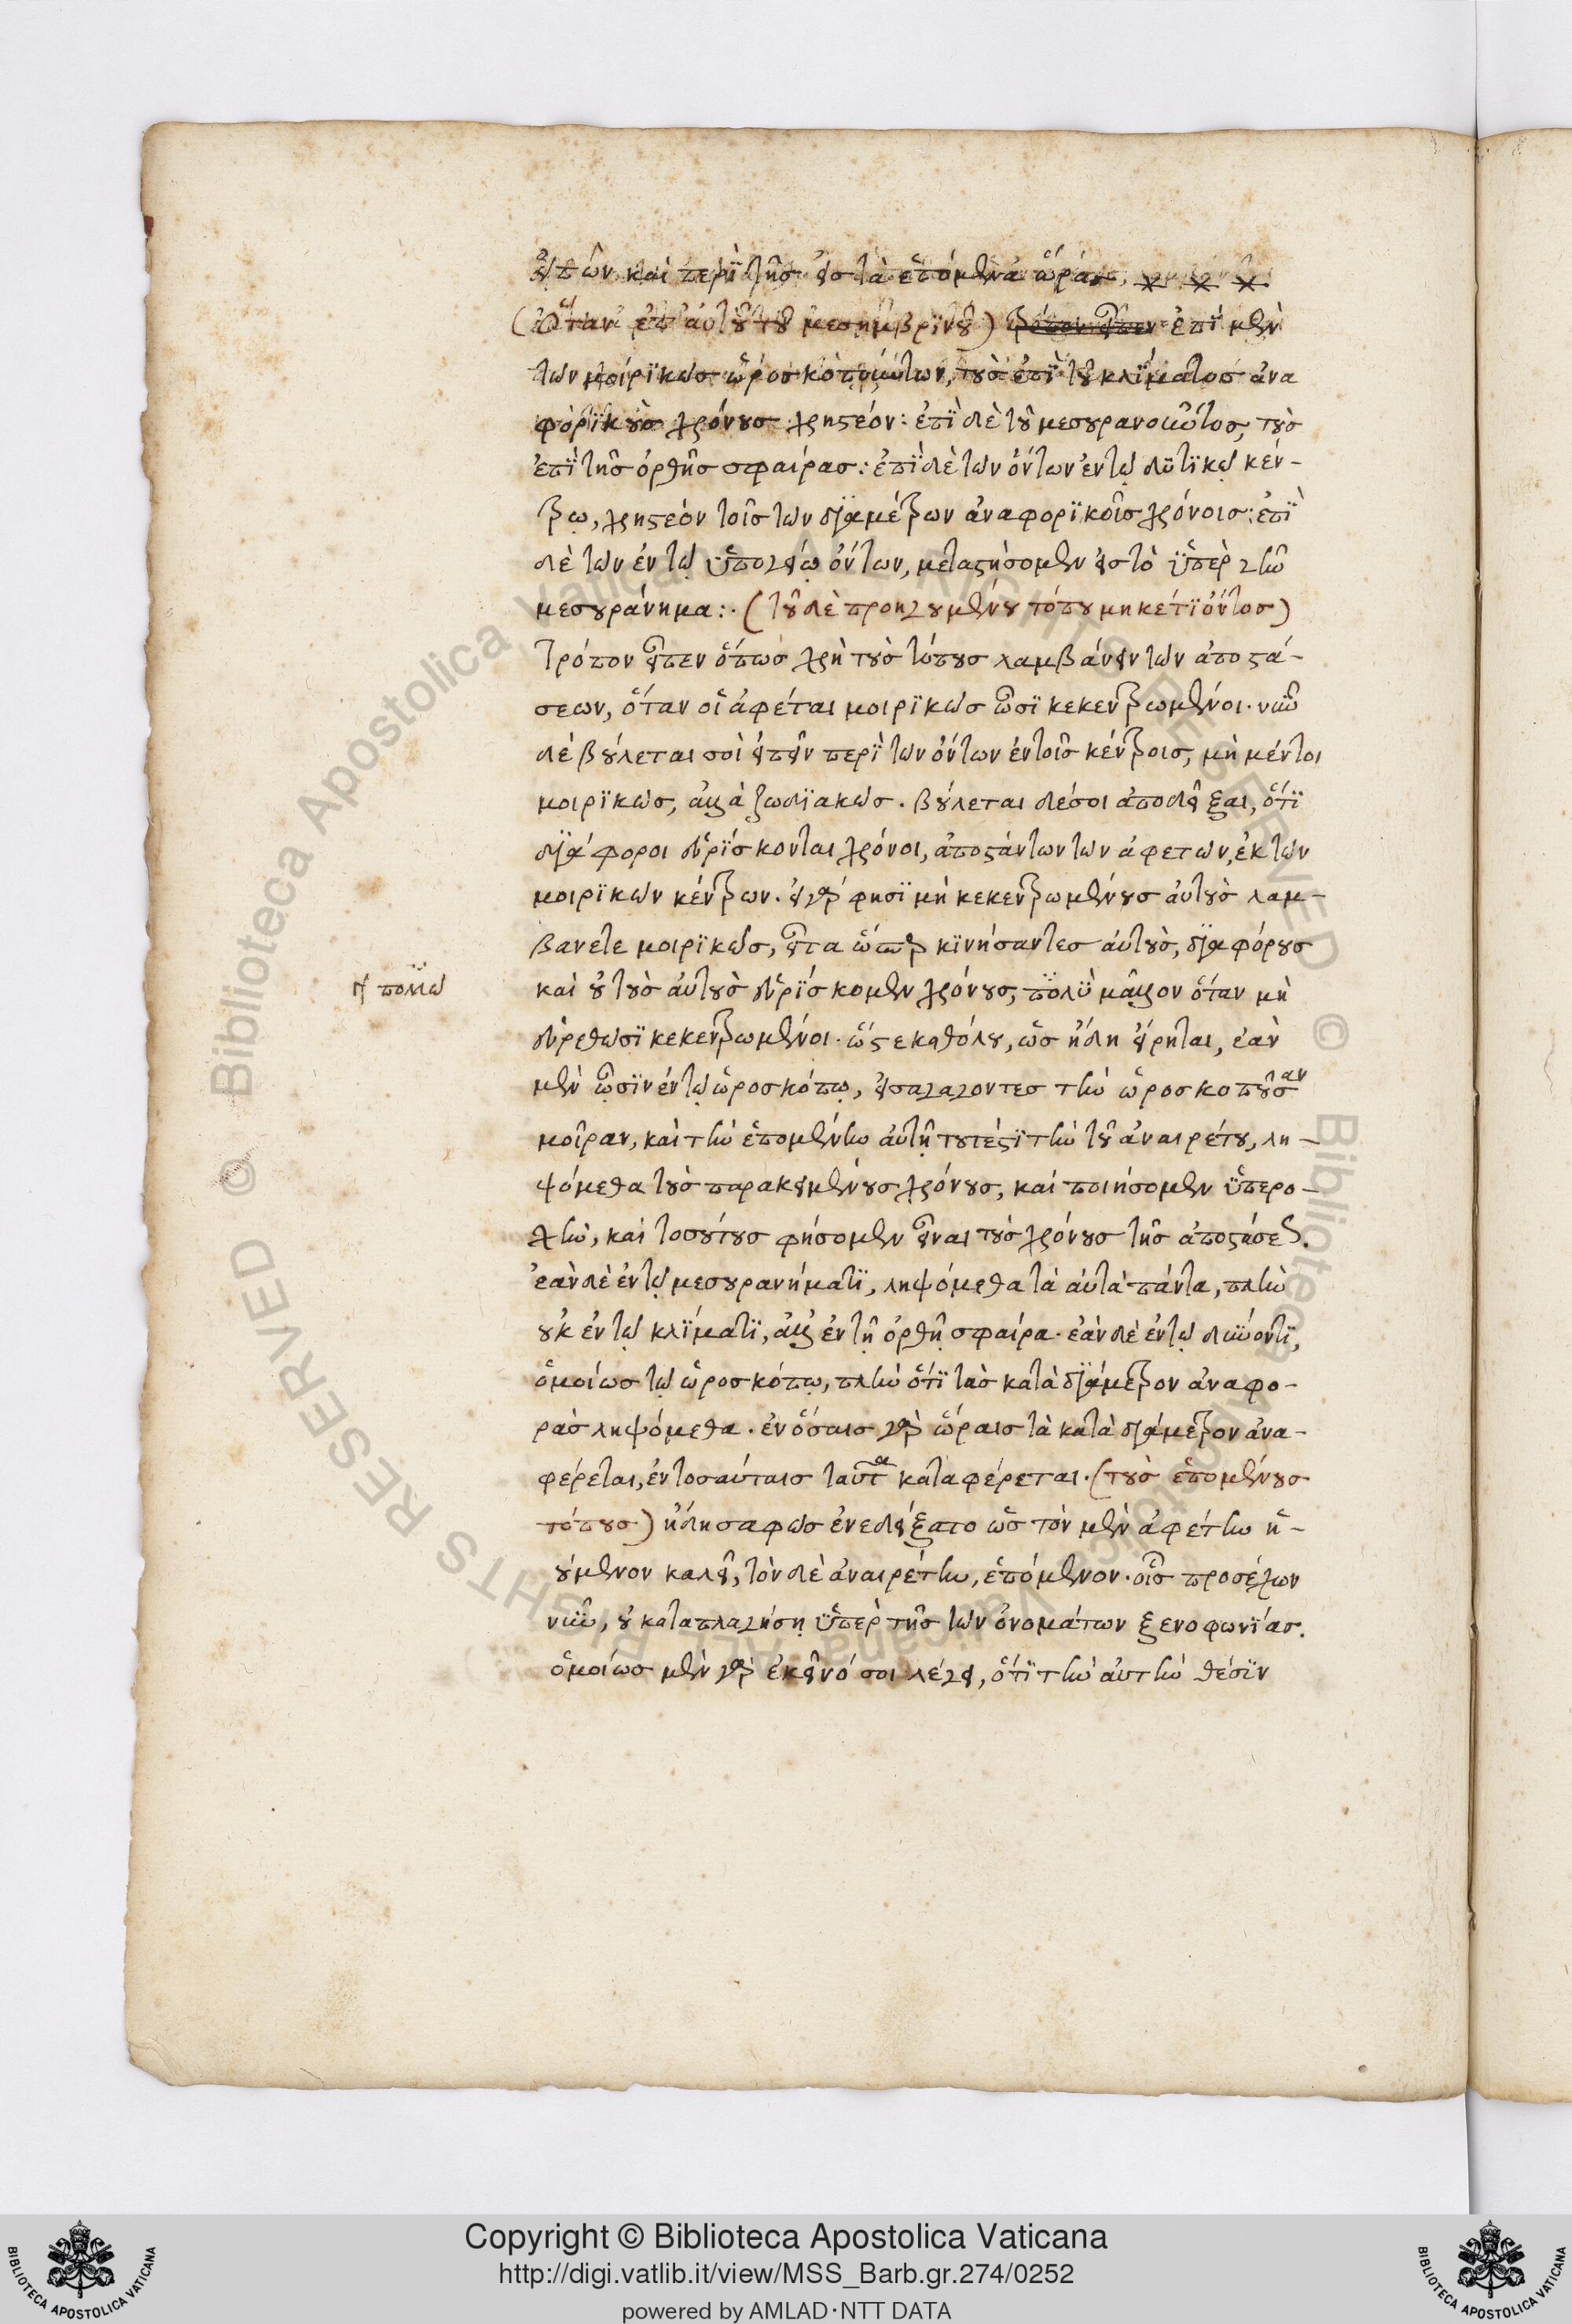 εἰπὼν καὶ περὶ τῆς εἰς τὰ ἑπόμενα ὥρας, ⁎ ⁎ ⁎
(Ὅταν ἐπ' αὐτοῦ τοῦ μεσημβρινοῦ) τρόπον εἶπεν ἐπὶ μὲν
τῶν μοιρικῶς ὡροσκοπούντων, τοὺς ἐπὶ τοῦ κλίματος ἀνα
φορικοὺς χρόνους χρηστέον: ἐπὶ δὲ τοῦ μεσουρανοῦντος, τοὺς
ἐπὶ τῆς ὀρθῆς σφαίρας: ἐπὶ δὲ τῶν ὄντων ἐν τῷ δυτικῷ κέν-
τρῳ, χρηστέον τοῖς τῶν διαμέτρων ἀναφορικοῖς χρόνοις: ἐπὶ
δὲ τῶν ἐν τῷ ὑπογείῳ ὄντων, μεταστήσομεν εἰς τὸ ὑπὲρ γῆν
μεσουράνημα:. (τοῦ δὲ προηγουμένου τόπου μηκέτι ὄντος)
Τρόπον εἶπεν ὅπως χρὴ τοὺς τόπους λαμβάνειν τῶν ἀποστά-
σεων, ὅταν οἱ ἀφέται μοιρικῶς ὦσι κεκεντρωμένοι. νῦν
δὲ βούλεταί σοι εἰπεῖν περὶ τῶν ὄντων ἐν τοῖς κέντροις, μὴ μέντοι
μοιρικῶς, ἀλλὰ ζωδιακῶς. βούλεται δέ σοι ἀποδεῖξαι, ὅτι
διάφοροι εὑρίσκονται χρόνοι, ἀποστάντων τῶν ἀφετῶν, ἐκ τῶν
μοιρικῶν κέντρων. εἰ γὰρ φησὶ μὴ κεκεντρωμένους αὐτοὺς λαμ-
βανετε μοιρικῶς, εἶτα ὥσπερ κινήσαντες αὐτοὺς, διαφόρους
καὶ οὐ τοὺς αὐτοὺς εὑρίσκομεν χρόνους, πολὺ μᾶλλον ὅταν μὴ
ἢ πολλῶ
εὑρεθῶσι κεκεντρωμένοι. ὥστε καθόλου, ὡς ἤδη εἴρηται, ἐὰν
μὲν ὦσιν ἐν τῷ ὡροσκόπῳ, εἰσαγαγόντες τὴν ὡροσκοποῦσαν
μοῖραν, καὶ τὴν ἑπομένην αὐτῇ τουτέστι τὴν τοῦ ἀναιρέτου, λη-
ψόμεθα τοὺς παρακειμένους χρόνους, καὶ ποιήσομεν ὑπερο-
χὴν, καὶ τοσούτους φήσομεν εἶναι τοὺς χρόνους τῆς ἀποστάσεως.
ἐὰν δὲ ἐν τῷ μεσουρανήματι, ληψόμεθα τὰ αὐτὰ πάντα, πλὴν
οὐκ ἐν τῷ κλίματι, ἀλλ' ἐν τῇ ὀρθῇ σφαίρα. ἐὰν δὲ ἐν τῷ δύνοντι,
ὁμοίως τῷ ὡροσκόπῳ, πλὴν ὅτι τὰς κατὰ διάμετρον ἀναφο-
ρὰς ληψόμεθα. ἐν ὅσαις γὰρ ὥραις τὰ κατὰ διάμετρον ἀνα-
φέρεται, ἐν τοσαύταις ταῦτα καταφέρεται. (τοὺς ἑπομένους
τόπους) ἤδη σαφῶς ἐνεδείξατο ὡς τὸν μὲν ἀφέτην ἡ-
γούμενον καλεῖ, τὸν δὲ ἀναιρέτην, ἑπόμενον. οἷς προσέχων
νῦν, οὐ καταπλαγήσῃ ὑπὲρ τῆς τῶν ὀνομάτων ξενοφωνίας.
ὁμοίως μὲν γὰρ ἐκεῖνό σοι λέγει, ὅτι τὴν αὐτὴν θέσιν
Copyright © Biblioteca Apostolica Vaticana
http://digi.vatlib.it/view/MSS_Barb.gr.274/0252
powered by AMLAD·NTT DATA